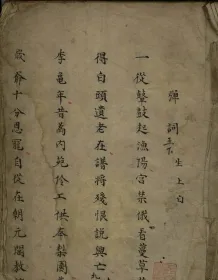 彈詞
生上白
一從鼙鼓起漁陽宮禁俄看蔓草
得白頭遺老在譜將殘恨說興亡
李龜年昔為內苑伶工供奉梨園
歲爺十分恩寵自從在朝元閣教